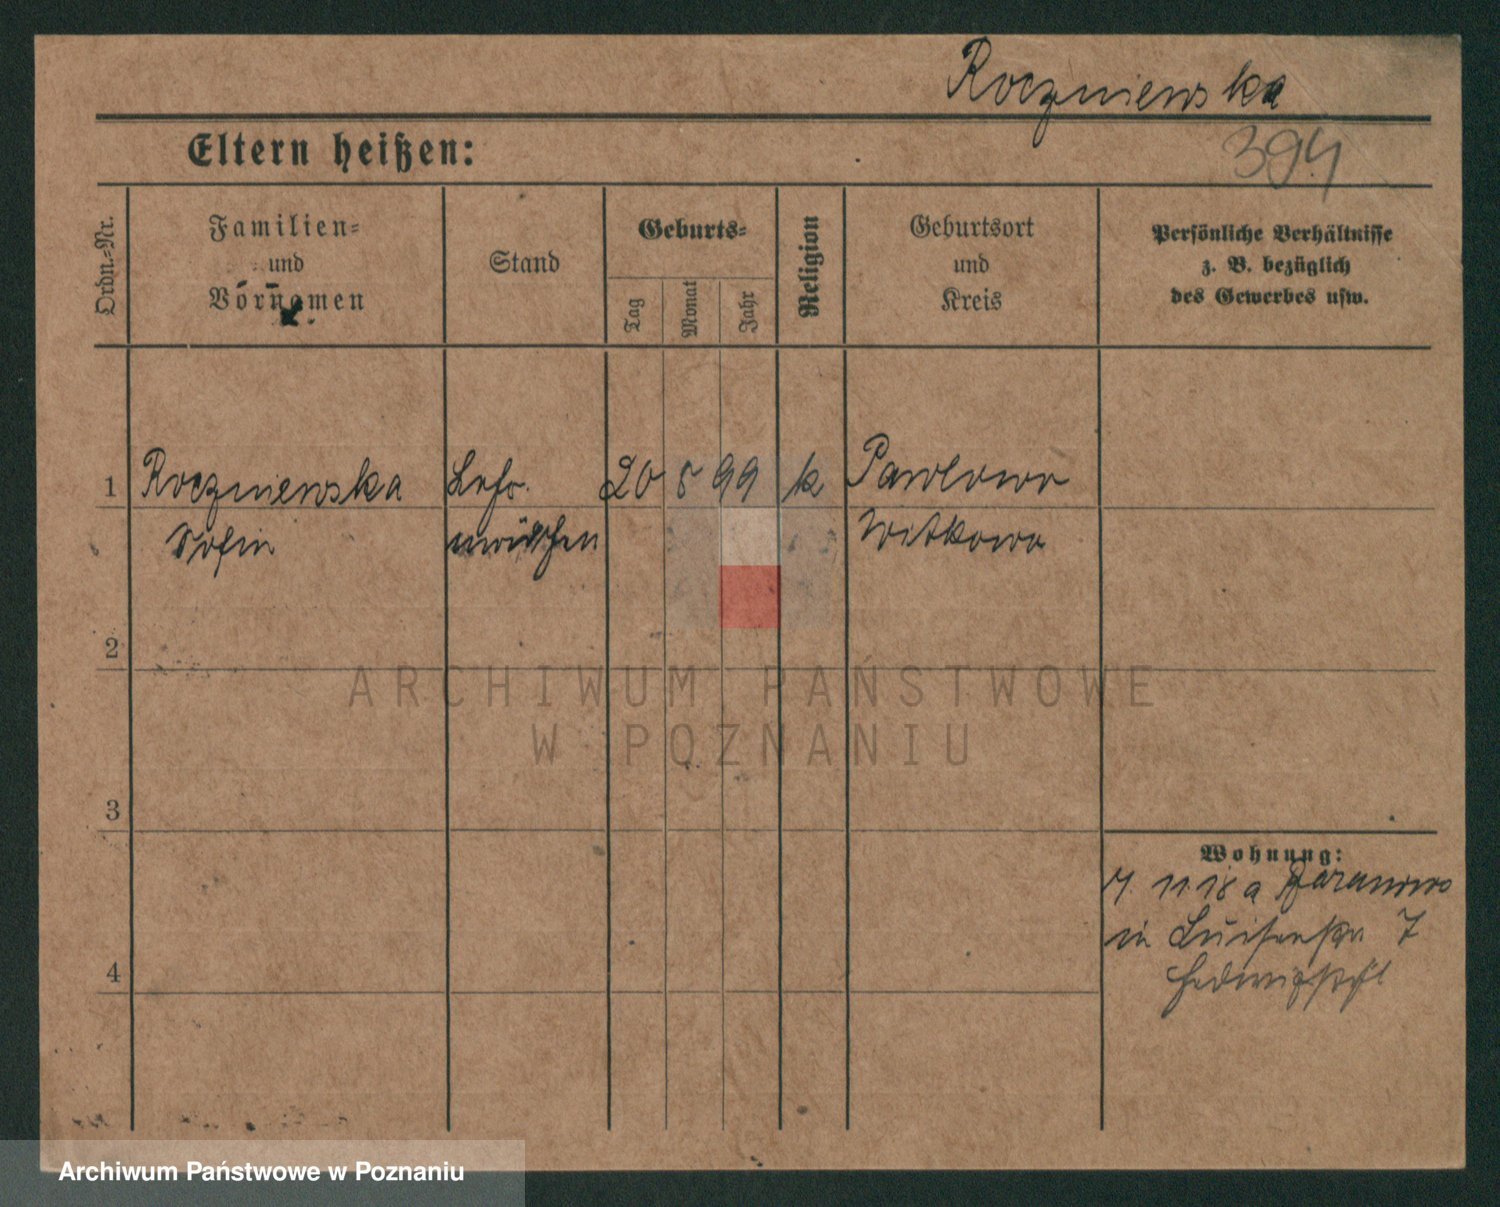 Roczniewska
394
Eltern heißen:
Ordn.-Nr.
Familien-
und
Vornamen
Stand
Geburts-
Tag
Monat
Jahr
Religion
Geburtsort
und
Kreis
Persönliche Verhältnisse
z. B. bezüglich
des Gewerbes usw.
1 Roczniewska 20 8 99 k Pawlowo
Sofie Witkowo
2
ARCHIWUM PAŃSTWOWE
W POZNANIU
3
Wohnung:
11.18 a Baranowo
in Luisenstr 7
4
Archiwum Państwowe w Poznaniu